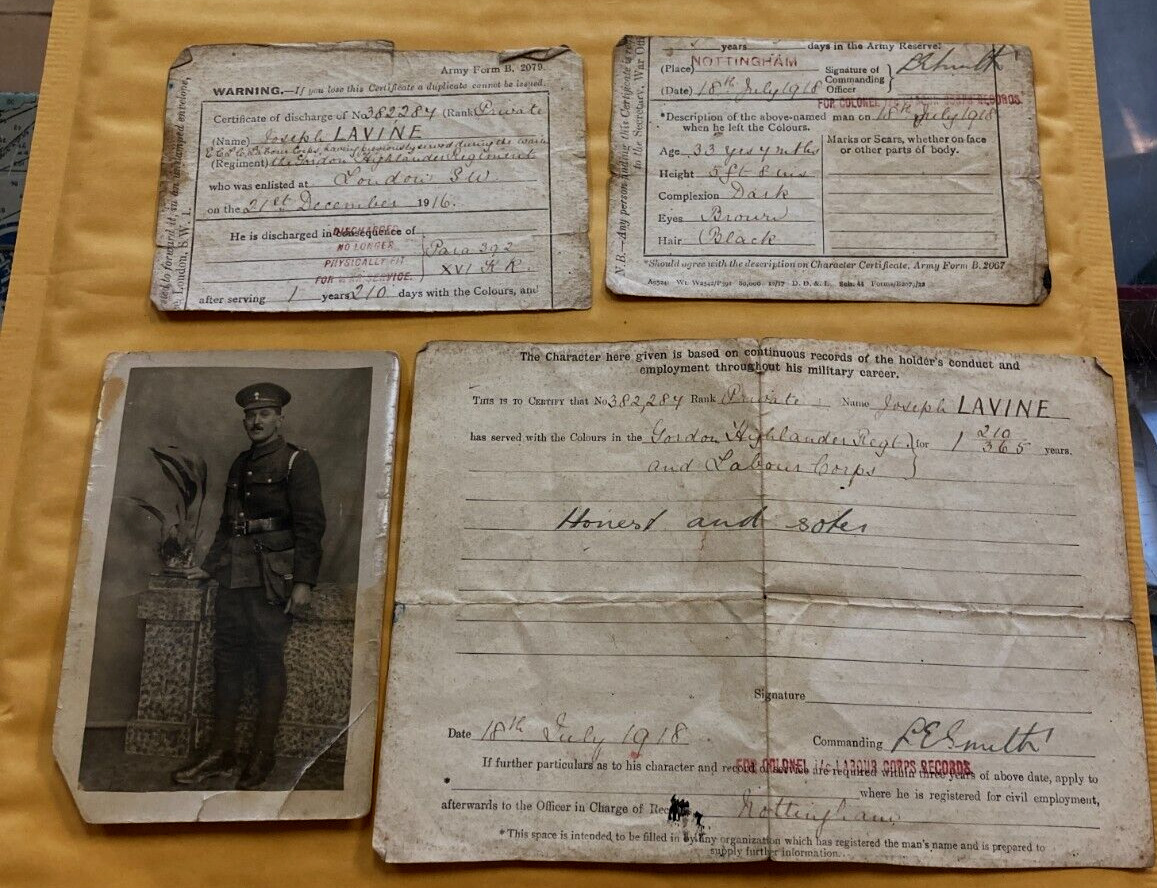 Army Form B. 2079.
WARNING.—If you lose this Certificate a duplicate cannot be issued.
Certificate of discharge of No 382284 (Rank) Private
(Name) Joseph LAVINE
Labour Corps, having previously served during the
(Regiment) the Gordon Highlander regiment
who was enlisted at London SW
on the 21st December 1916.
He is discharged in consequence of
DISCHARGED
NO LONGER
PHYSICALLY FIT
FOR WAR SERVICE.
Para 392
XVI K R.
after serving 1 years 210 days with the Colours, and
to forward it, in an unstamped envelope,
London, S.W. 1.
years days in the Army Reserve!
(Place) NOTTINGHAM
Signature of Commanding Officer L E Smith
(Date) 18th July 1918
FOR COLONEL CORPS RECORDS.
*Description of the above-named man on 18th July 1918
when he left the Colours.
Age 33 yrs 4 mths
Height 5 ft 8 ins
Complexion Dark
Eyes Brown
Hair Black
Marks or Scars, whether on face
or other parts of body.
*Should agree with the description on Character Certificate, Army Form B. 2067
N.B.—Any person finding this Certificate is
to the Secretary, War Off
The Character here given is based on continuous records of the holder's conduct and
employment throughout his military career.
THIS IS TO CERTIFY that No 382,284 Rank Private Name Joseph LAVINE
has served with the Colours in the Gordon Highlander Regt. for 1 210/365 years.
and Labour Corps
Honest and sober
Signature
Date 18th July 1918 Commanding L E Smith
FOR COLONEL i/c LABOUR CORPS RECORDS.
If further particulars as to his character and record of service are required within three years of above date, apply to
* where he is registered for civil employment,
afterwards to the Officer in Charge of Rec Nottingham
*This space is intended to be filled in by any organization which has registered the man's name and is prepared to
supply further information.